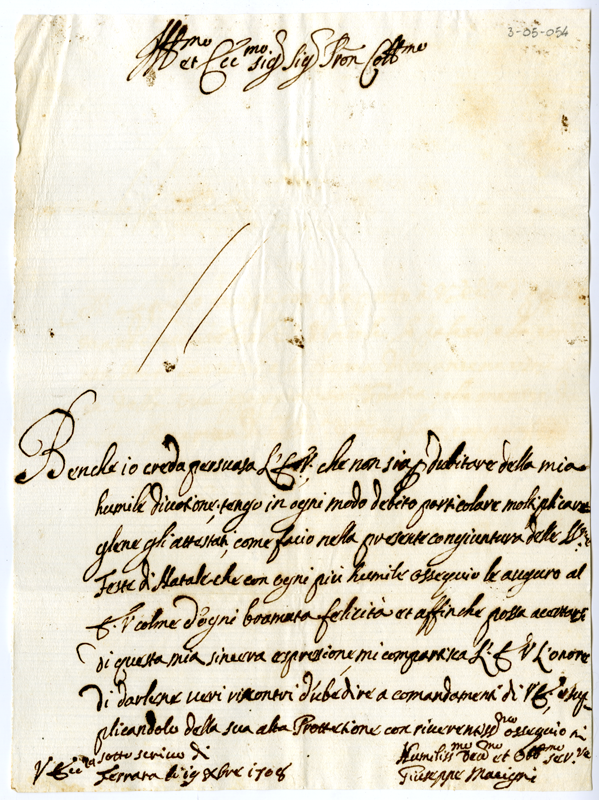 3-05-054
Ill.mo et Ecc.mo Sig. Sig. Pron Coll.mo
Benche io creda persuasa L'E.V. che non sia p dubitare della mia
humile divotione, tengo in ogni modo debito particolare moltiplicar
glene gli attestati, come facio nella presente congiuntura delle SS.me
Feste di Natale che con ogni più humile ossequio le auguro al
E.V. colme d'ogni bramata felicità et affinche possa accertarsi
di questa mia sincera espressione mi compartisca L'E.V. L'onore
di darlene veri riscontri d'ubedire a comandamenti di V.E. sup
plicandolo della sua alta Prottetione con riverentiss.mo ossequio mi
sotto scrivo di
V. Ecc.za
Ferrara li 19 Xbre 1708
Humiliss.mo Dev.mo et Obb.mo Serv.re
Giuseppe